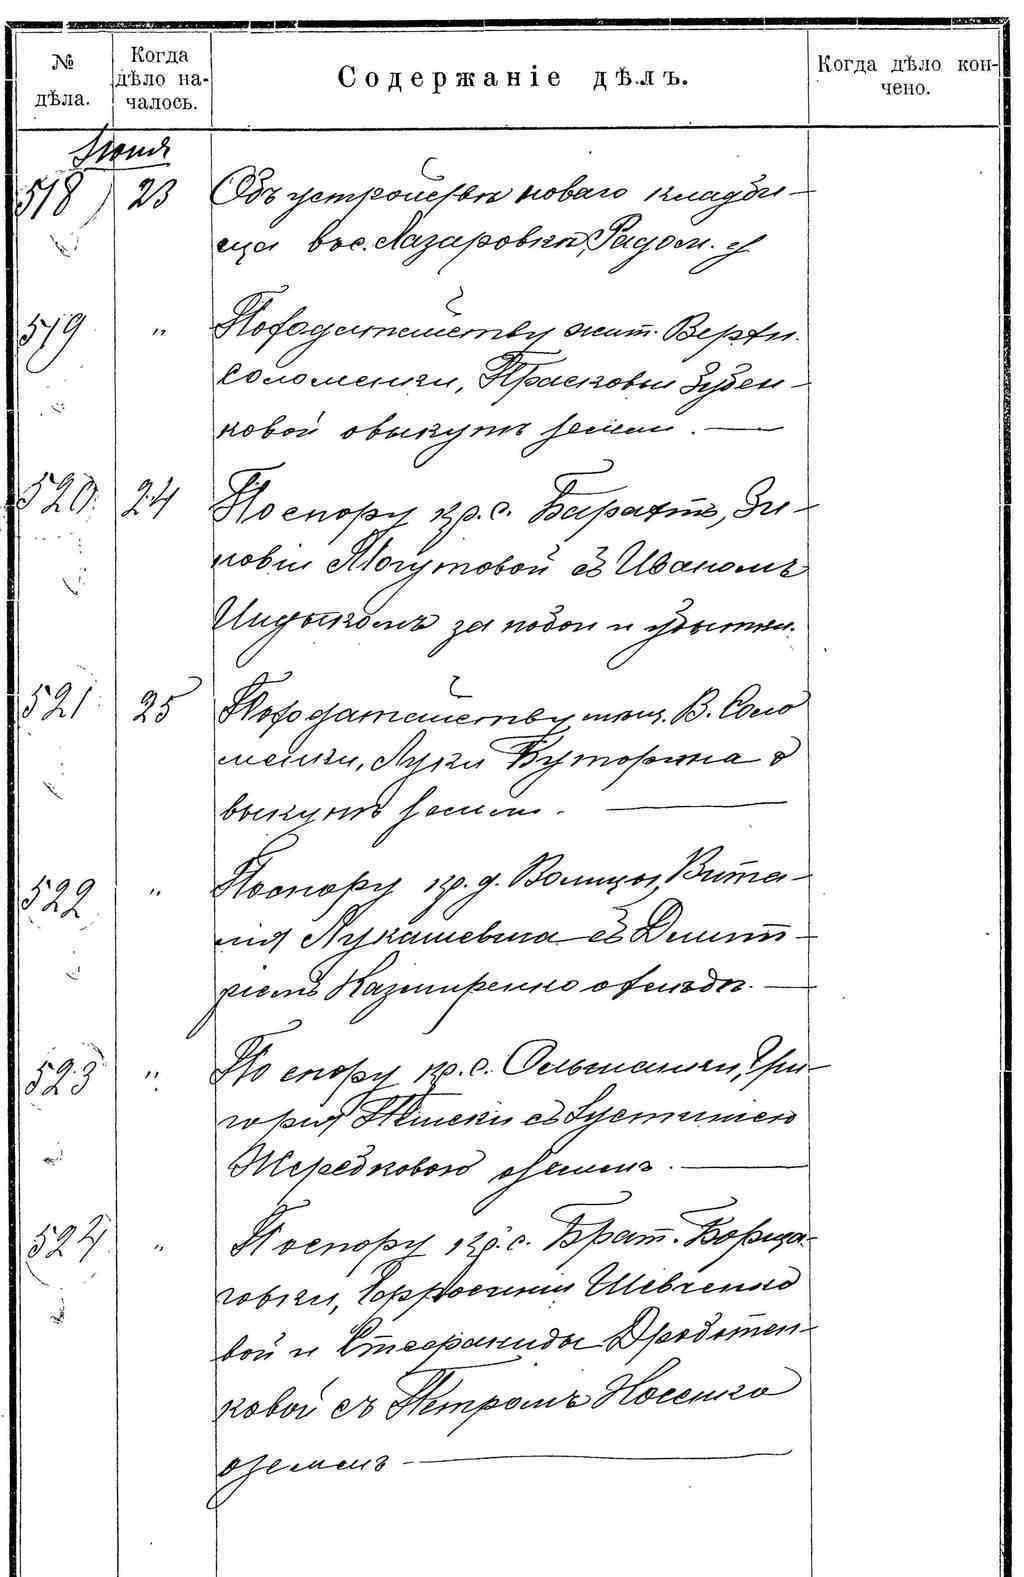 № дѣла.
Когда
дѣло на-
чалось.
Содержаніе дѣлъ.
Когда дѣло кон-
чено.
Іюня
518 23 Объ устройствѣ новаго кладби-
ща въ с. Лазаровкѣ, Радом. у
519 " По ходатайству жит. Верхн.
Соломенки, Прасковьи Зубен-
ковой о выкупѣ земли. —
520 24 По спору кр. с. Барахтъ, Зи-
новіи Могутовой съ Иваномъ
Индыкомъ за побои и убытки.
521 25 По ходатайству мѣщ. В. Соло
менки, Луки Буторина о
выкупѣ земли. —
522 " По спору кр. д. Волицы, Вита-
лія Лукашевича съ Дмит-
ріемъ Казмиренко о землѣ. —
523 " По спору кр. с. Ольшанки, Гри-
горія съ Устиніею
Жеребковою о землѣ. —
524 " По спору кр. с. Брат. Борща-
говки, Евфросиніи Шевченко
вой и Стефаниды Дроботен-
ковой съ Петромъ Носенко
о землѣ —